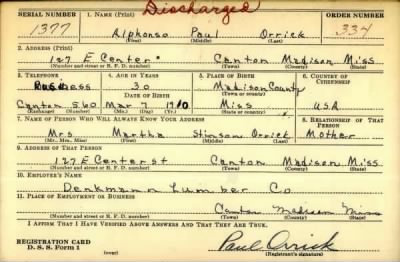 Discharged
SERIAL NUMBER 1. NAME (Print) ORDER NUMBER
1377 Alphonso Paul Orrick 334
(First) (Middle) (Last)
2. ADDRESS (Print)
127 E Center Canton Madison Miss
(Number and street or R. F. D. number) (Town) (County) (State)
3. TELEPHONE 4. AGE IN YEARS 5. PLACE OF BIRTH 6. COUNTRY OF CITIZENSHIP
Business 30 Madison County
DATE OF BIRTH (Town or county)
Canton 560 Mar 7 1910 Miss USA
(Exchange) (Number) (Mo.) (Day) (Yr.) (State or country)
7. NAME OF PERSON WHO WILL ALWAYS KNOW YOUR ADDRESS 8. RELATIONSHIP OF THAT PERSON
Mrs Martha Stinson Orrick Mother
(Mr., Mrs., Miss) (First) (Middle) (Last)
9. ADDRESS OF THAT PERSON
127 E Center st Canton Madison Miss
(Number and street or R. F. D. number) (Town) (County) (State)
10. EMPLOYER'S NAME
Denkmann Lumber Co
11. PLACE OF EMPLOYMENT OR BUSINESS
Canton Madison Miss
(Number and street or R. F. D. number) (Town) (County) (State)
I AFFIRM THAT I HAVE VERIFIED ABOVE ANSWERS AND THAT THEY ARE TRUE.
REGISTRATION CARD
D. S. S. Form 1 Paul Orrick
(over) (Registrant's signature)